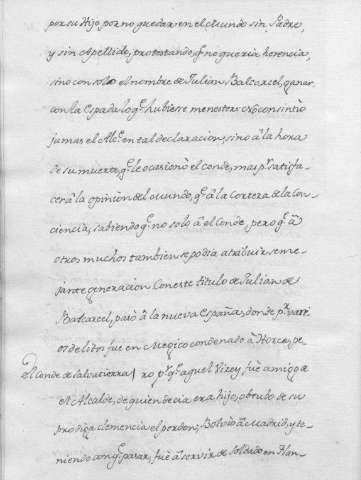 por su Hijo, por no quedar en el Mundo sin Padre,
y sin Apellido, protestando, q.e no queria herencia,
sino con solo el nombre de Julian Balcarcel, ganar
con la Espada lo q.e hubiese menester: No consintio
jamas el Alc.e en tal declaracion, sino â la hora
de su muerte, q.e le ocasionò el conde, mas p.r satisfa-
cer â la opinion del Mundo, q.e â la Corteza de la Con-
ciencia, sabiendo q.e no solo â el Conde, pero q.e â
otros muchos tambien se podia atribuir seme-
jante generacion Con este titulo de Julian de
Balcarcel, pasò â la nueva España, donde p.r varie
os delitos fue en Megico condenado â Horca, pe-
El Conde de Salvatierra ro p.r q.e aquel Virey, fuè amigo de
el Alcalde, de quien decia era hijo, obtubo de su
prodiga clemencia el perdon; Bolviò â Madrid, y te-
niendo con q.e pasar, fuè â servir de Soldado en Flan-